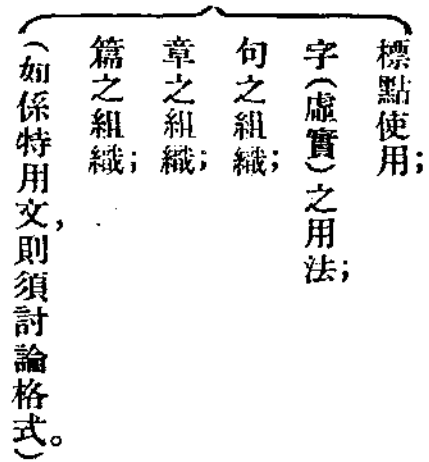 標點使用;
字(虛實)之用法;
句之組織;
章之組織;
篇之組織;
(如係特用文,則須討論格式。)